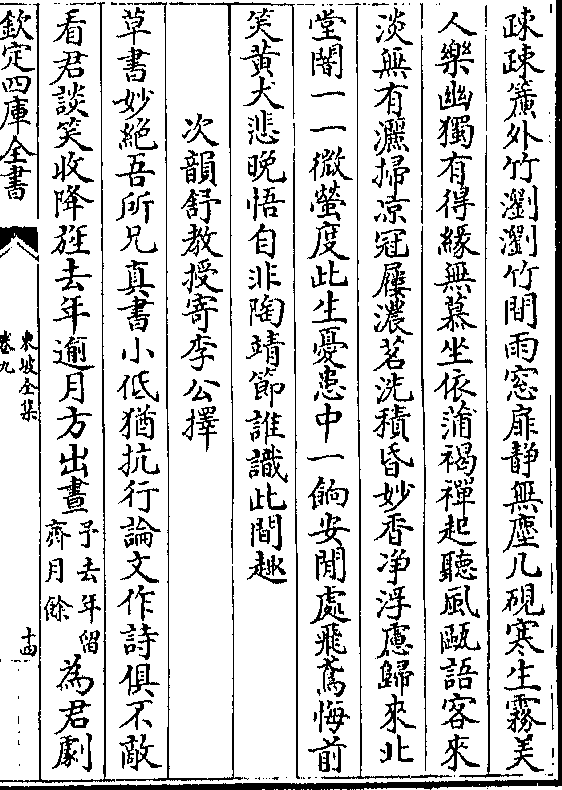 疎疎簾外竹瀏瀏竹間雨窓扉静無塵几硯寒生霧美
人樂幽獨有得緣無慕坐依蒲褐禪起聽風甌語客來
淡無有灑掃凉冠屨濃茗洗積昏妙香净浮慮歸來北
堂闇一一微螢度此生憂患中一餉安閒處飛鳶悔前
笑黄犬悲晚悟自非陶靖節誰識此間趣
次韻舒教授寄李公擇
草書妙絶吾所兄真書小低猶抗行論文作詩俱不敵
看君談笑收降旌去年逾月方出晝予去年留齊月餘為君劇
欽定四庫全書
東坡全集
卷九
十四